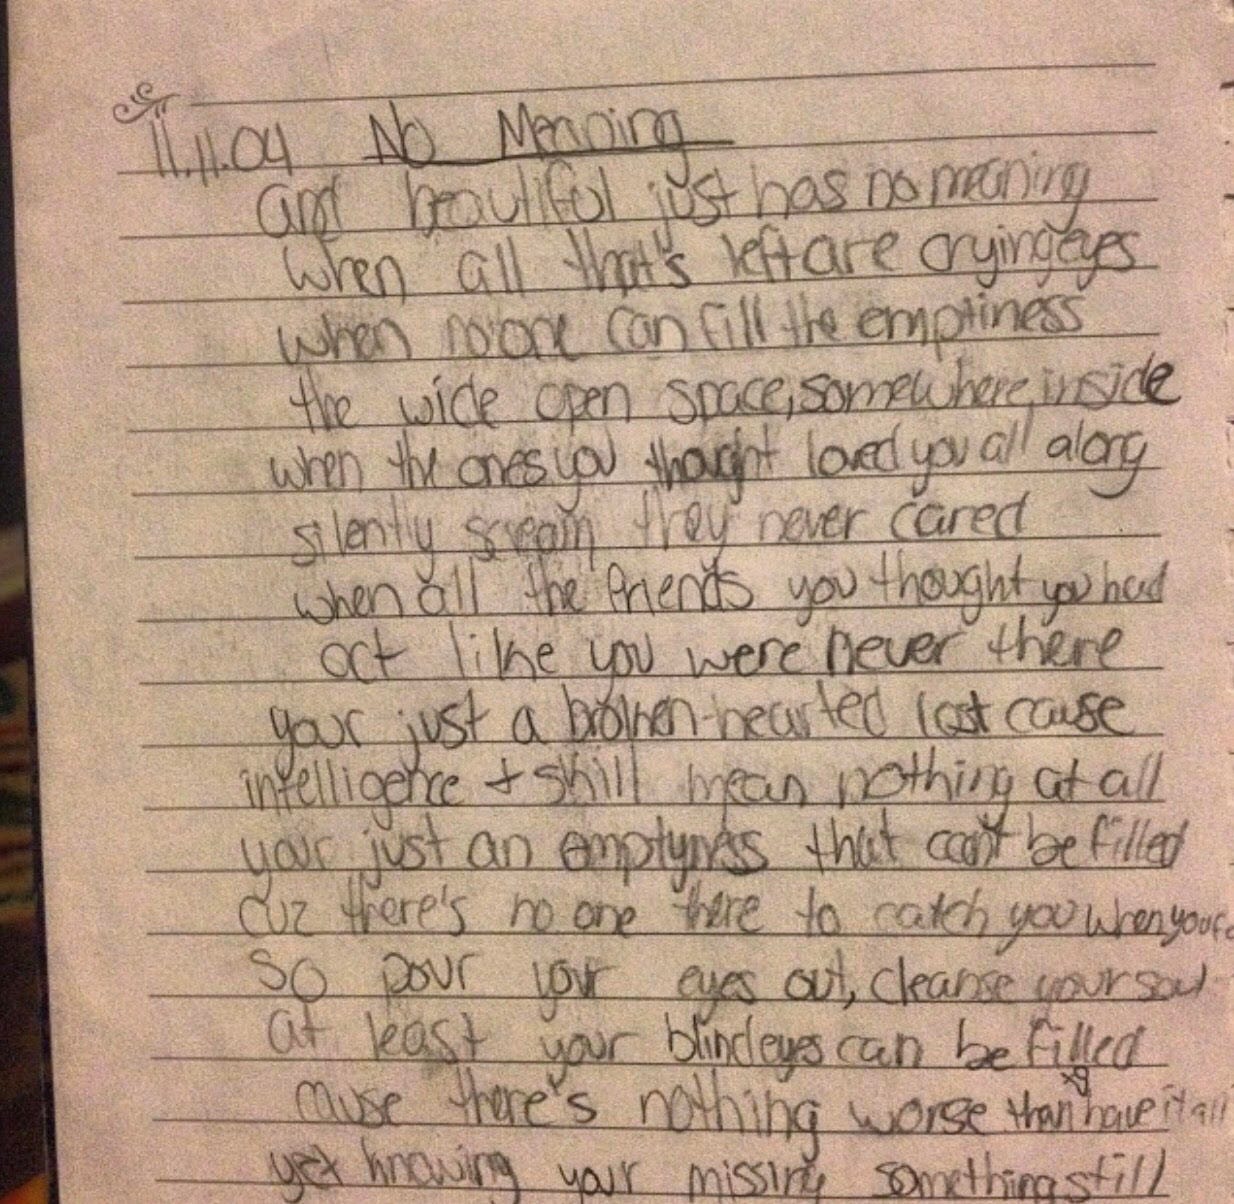 11.11.04 No Meaning
and beautiful just has no meaning
when all that's left are crying eyes
when no one can fill the emptiness
the wide open space, somewhere, inside
when the ones you thought loved you all along
silently scream they never cared
when all the friends you thought you had
act like you were never there
your just a broken-hearted lost cause
intelligence + skill mean nothing at all
your just an emptyness that can't be filled
cuz there's no one there to catch you when you
so pour your eyes out, cleanse your soul
at least your blind eyes can be filled
cause there's nothing worse than to have it all
yet knowing your missing something still